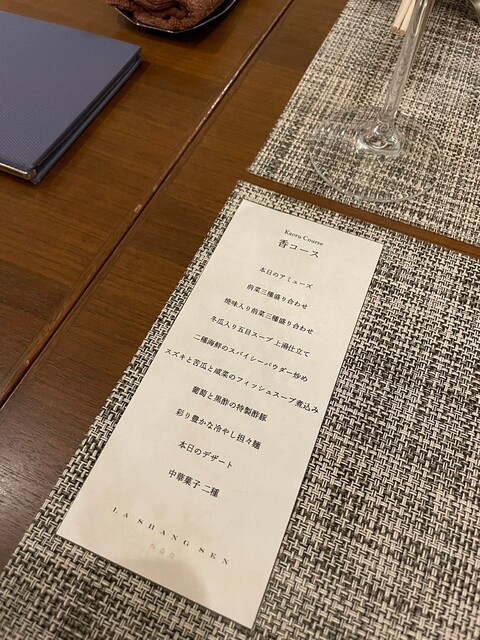 Kaoru Course
香コース
本日のアミューズ
前菜三種盛り合わせ
焼味入り前菜三種盛り合わせ
冬瓜入り五目スープ 上湯仕立て
二種海鮮のスパイシーパウダー炒め
スズキと苦瓜と咸菜のフィッシュスープ煮込み
葡萄と黒酢の特製酢豚
彩り豊かな冷やし担々麺
本日のデザート
中華菓子二種
LA SHANG SEN